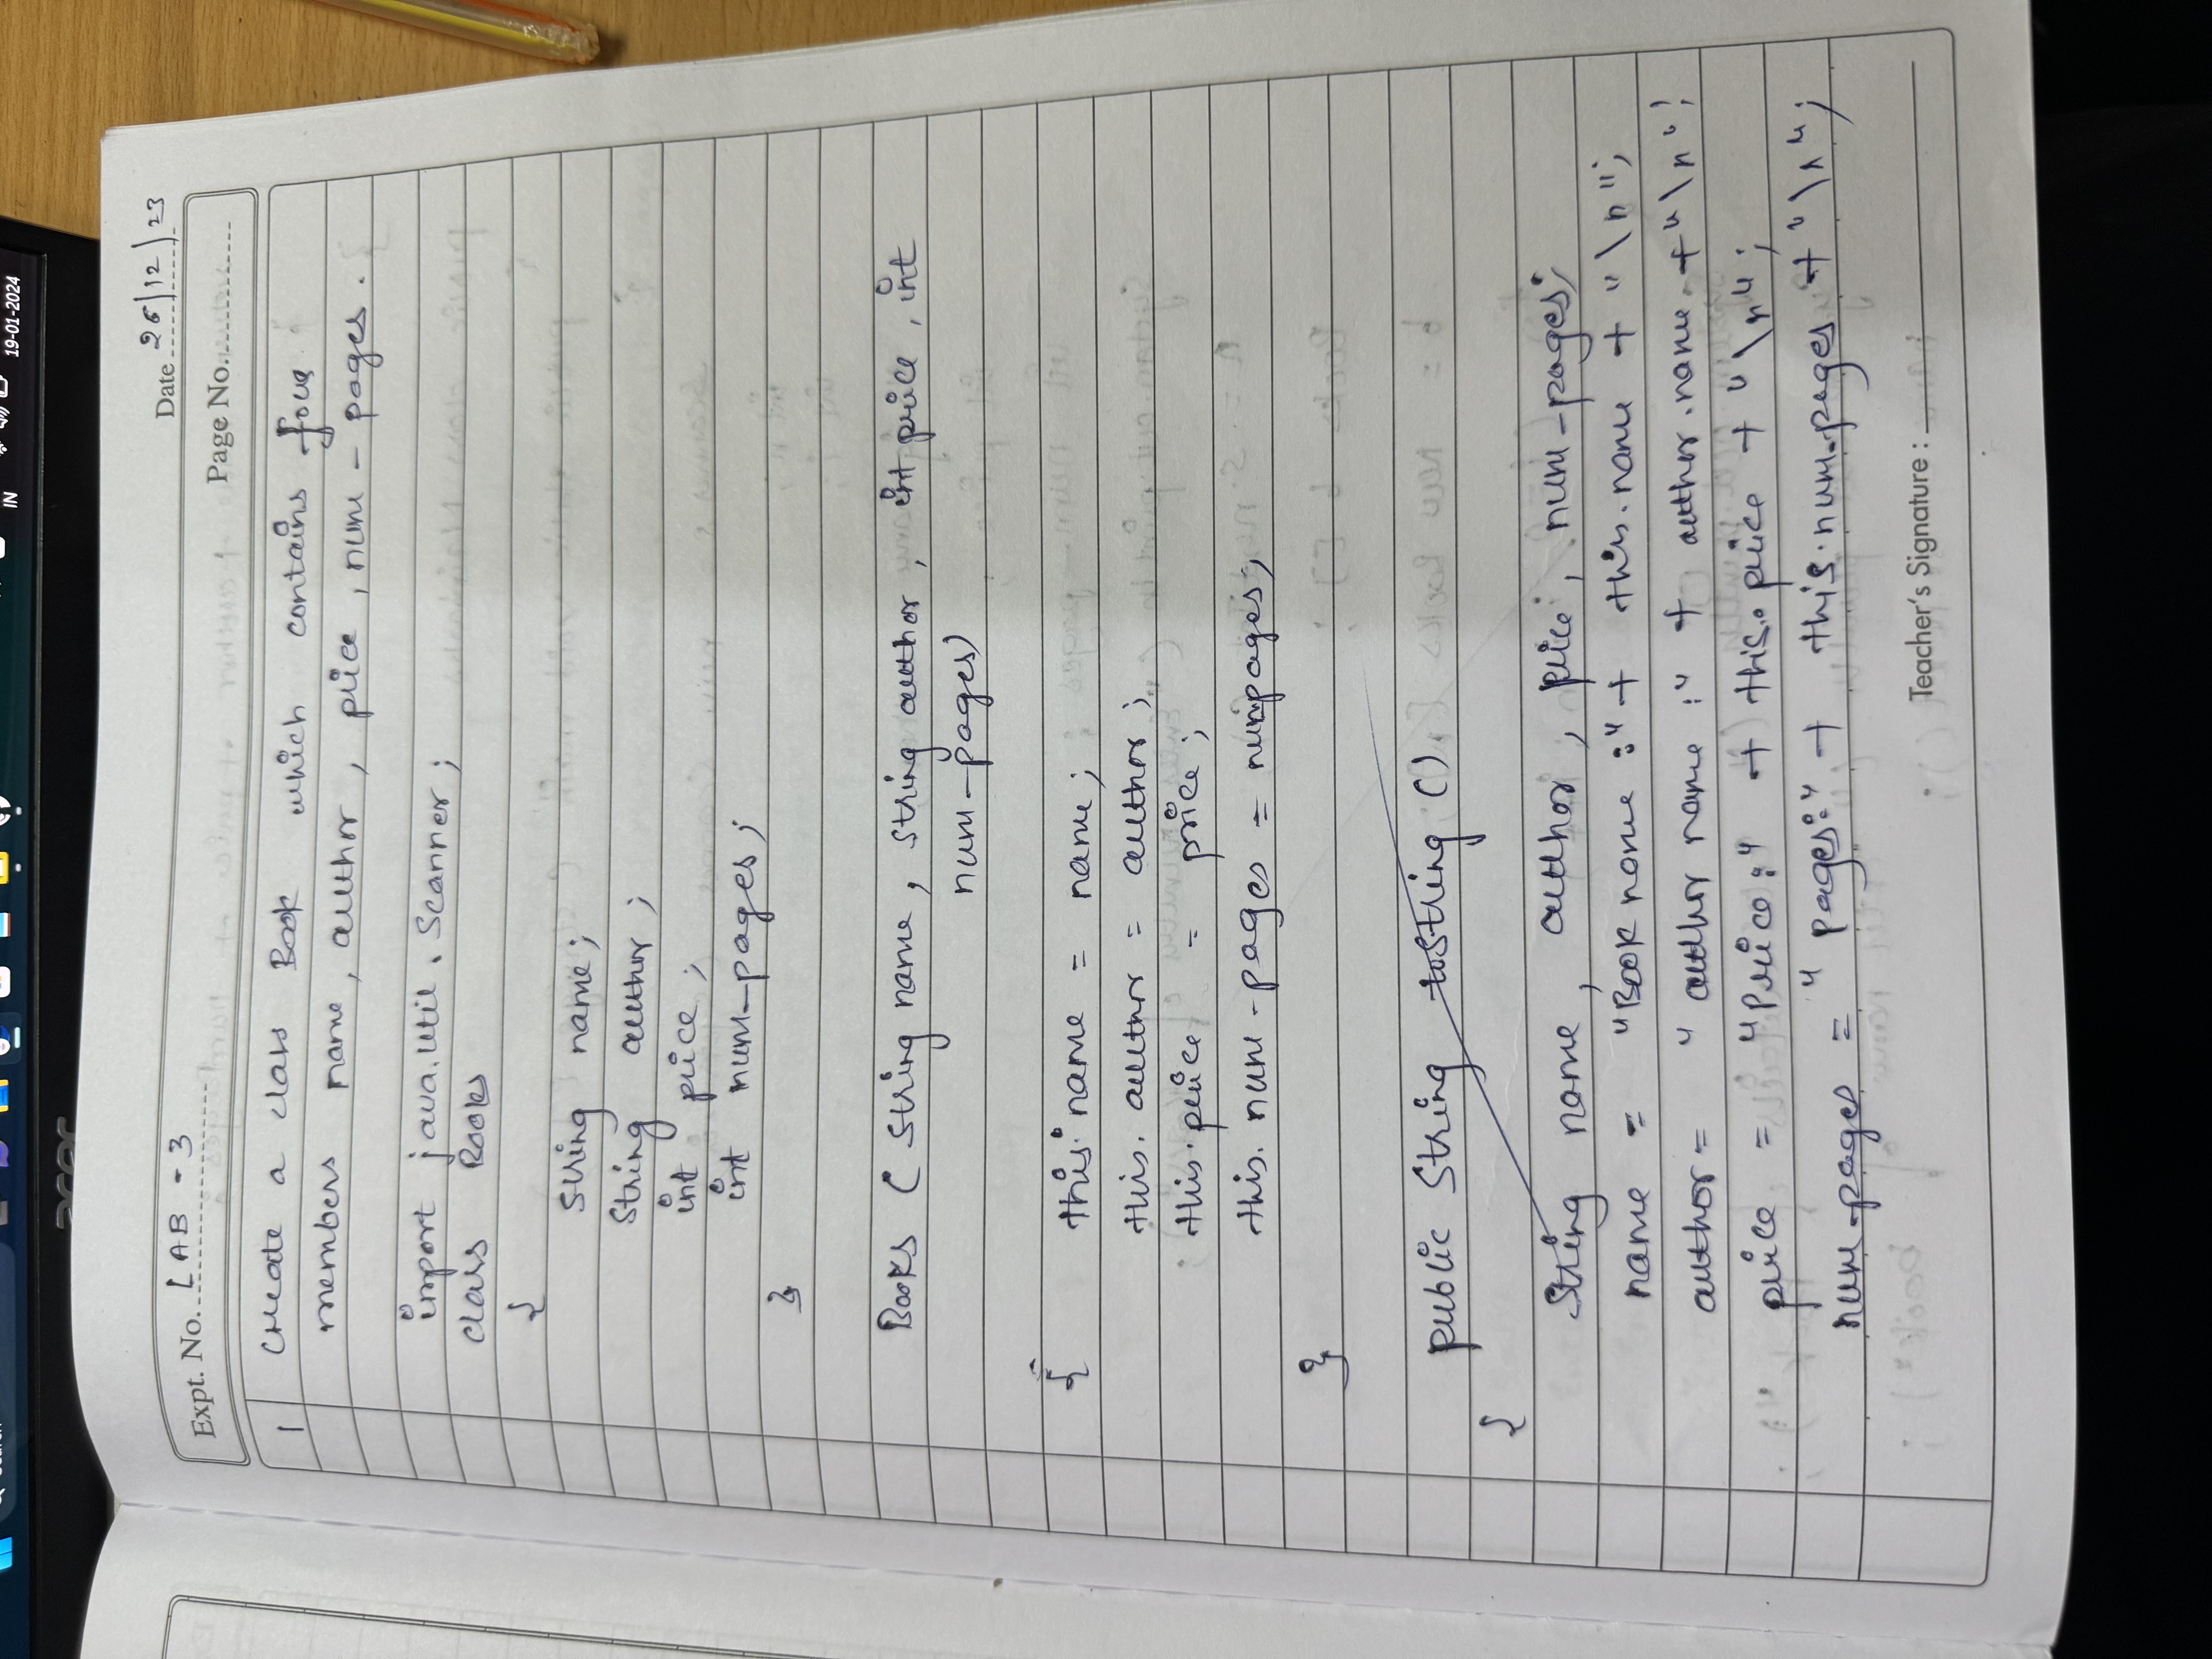 Search
IN
19-01-2024
acer
Date 26/12/23
Expt. No. LAB - 3
Page No.
1 Create a class Book which contains four
members name, author, price, num-pages.
import java.util.Scanner;
class Books
{
String name;
String author;
int price;
int num-pages;
}
Books (String name, String author, int price, int
num-pages)
{ this.name = name;
this.author = author;
this.price = price;
this.num-pages = numpages;
}
public String toString ()
{
String name, author, price, num-pages;
name = "Book name :" + this.name + "\n";
author = "author name :" + author.name + "\n";
price = "Price:" + this.price + "\n";
num-pages = "pages:" + this.num-pages + "\n";
Teacher's Signature :